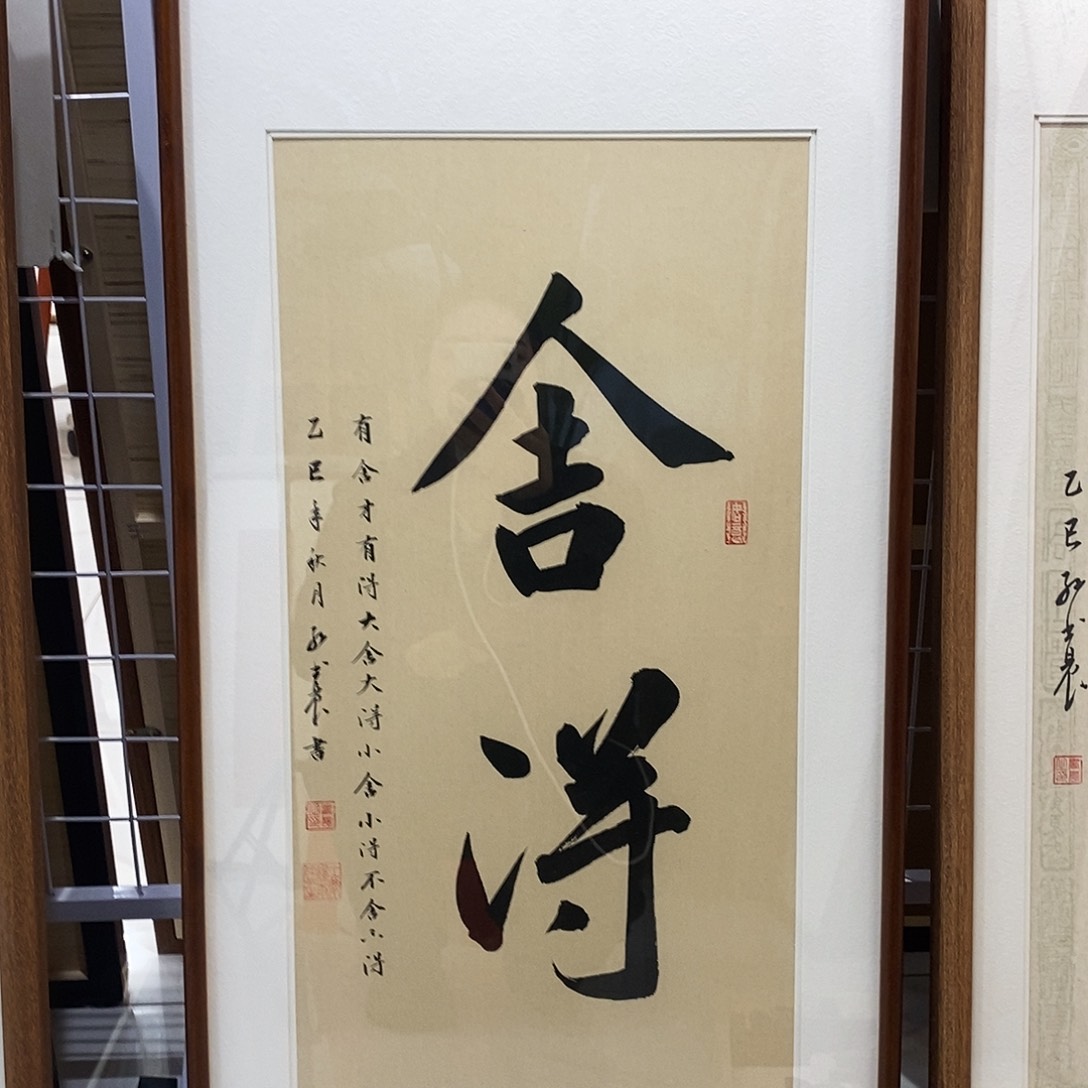 舍得
有舍才有得大舍大得小舍小得不舍不得
乙巳年秋月
书
乙巳